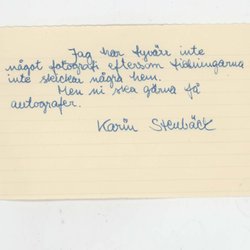 Jag har tyvärr inte
något fotografi eftersom tidningarna
inte skickar några hem.
Men ni ska gärna få
autografer.
Karin Stenbäck